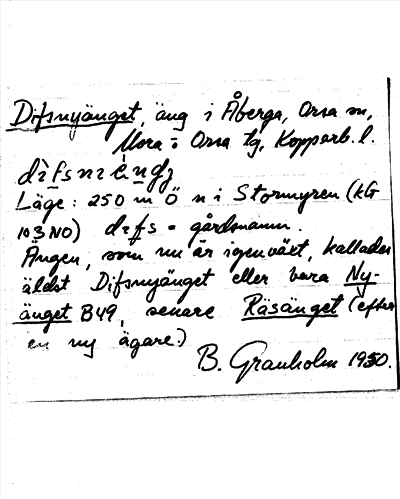 Difsnyänget, äng i Åberga, Orsa sn,
Mora o Orsa tg, Kopparb. l.
Läge: 250 m Ö n i Stormyren (kG
103 NO) difs = gårdsnamn.
Ängen, som nu är igenväxt, kallades
äldst Difsnyänget eller bara Ny-
änget B49, senare Räsänget (efter
en ny ägare.)
B. Granholm 1950.